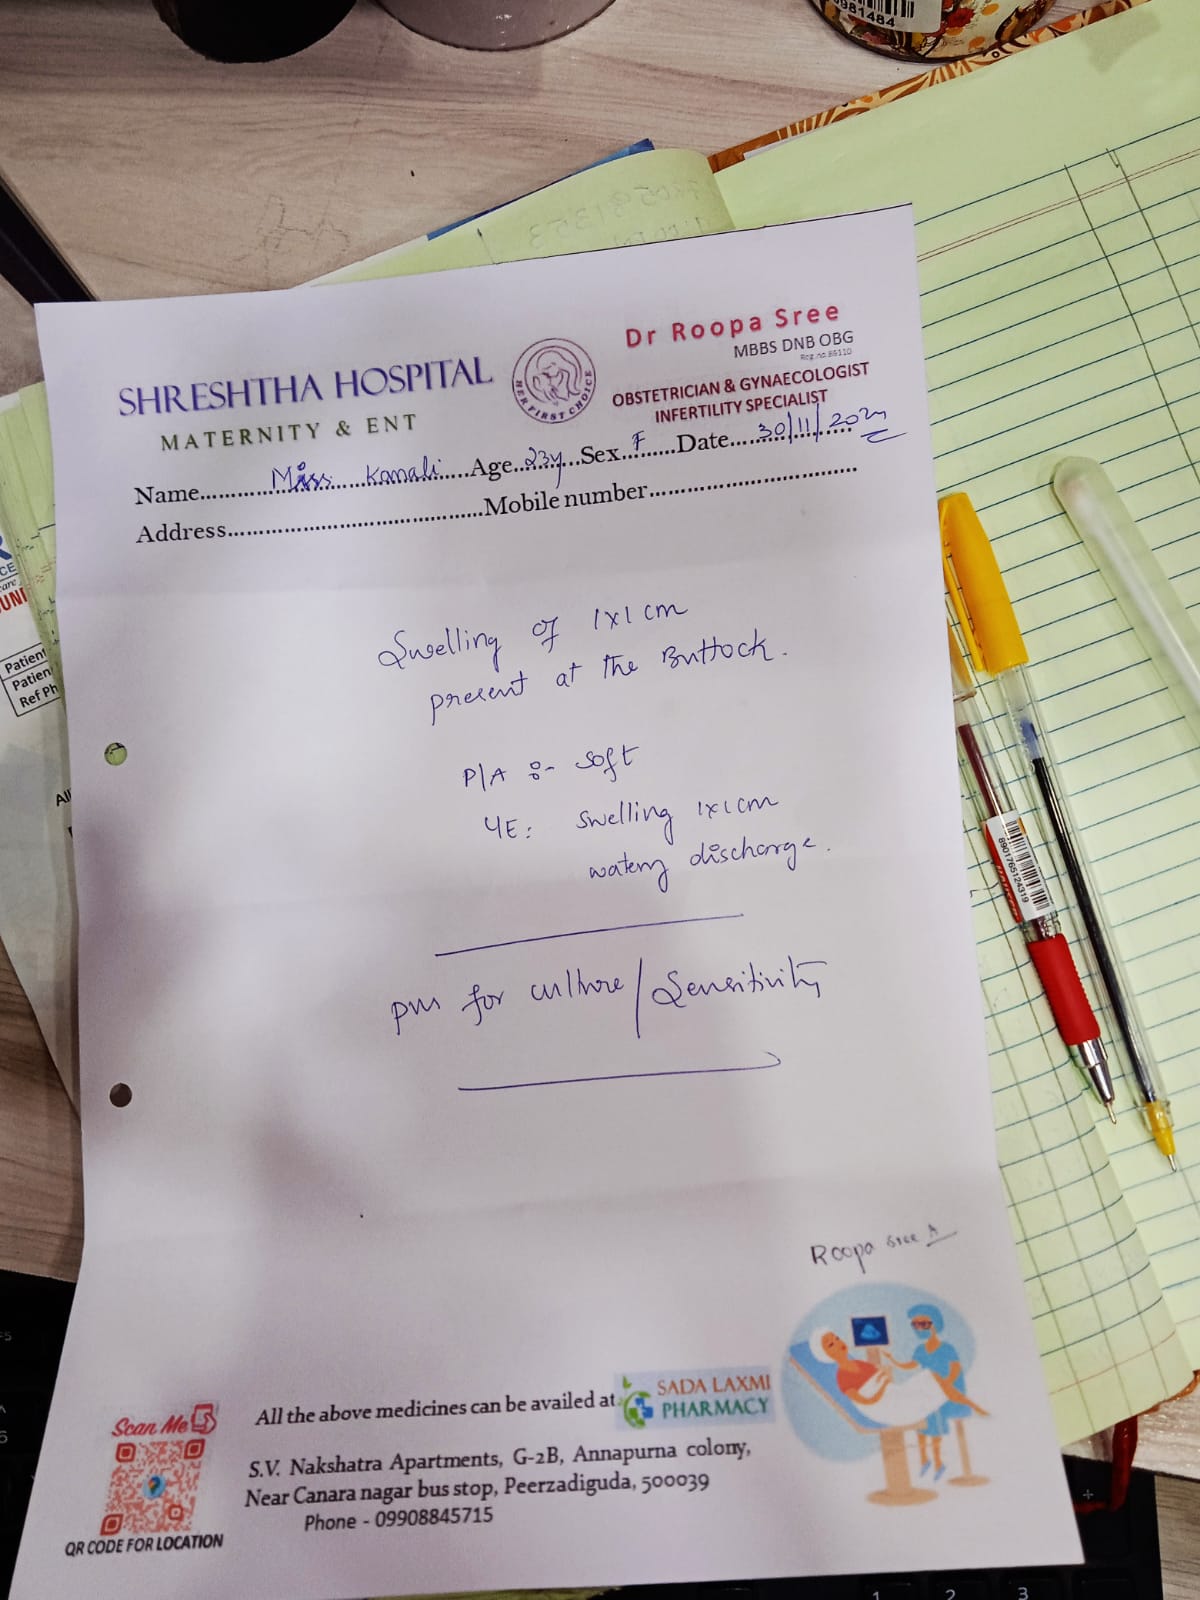 981484
SHRESHTHA HOSPITAL
MATERNITY & ENT
HER FIRST CHOICE
Dr Roopa Sree
MBBS DNB OBG
Reg.no.86110
OBSTETRICIAN & GYNAECOLOGIST
INFERTILITY SPECIALIST
Name...............Miss Kamali.....Age..23y...Sex..F......Date....30/11/202
Address..........................................Mobile number..................................
Swelling of 1x1 cm
present at the Buttock.
P/A :- soft
L/E: Swelling 1x1cm
watery discharge.
pus for culture/Sensitivity
Roopa Sree A
Scan Me
QR CODE FOR LOCATION
All the above medicines can be availed at
SADA LAXMI
PHARMACY
S.V. Nakshatra Apartments, G-2B, Annapurna colony,
Near Canara nagar bus stop, Peerzadiguda, 500039
Phone - 09908845715
Patien
Patien
Ref Ph
8901765124319
1 2 3